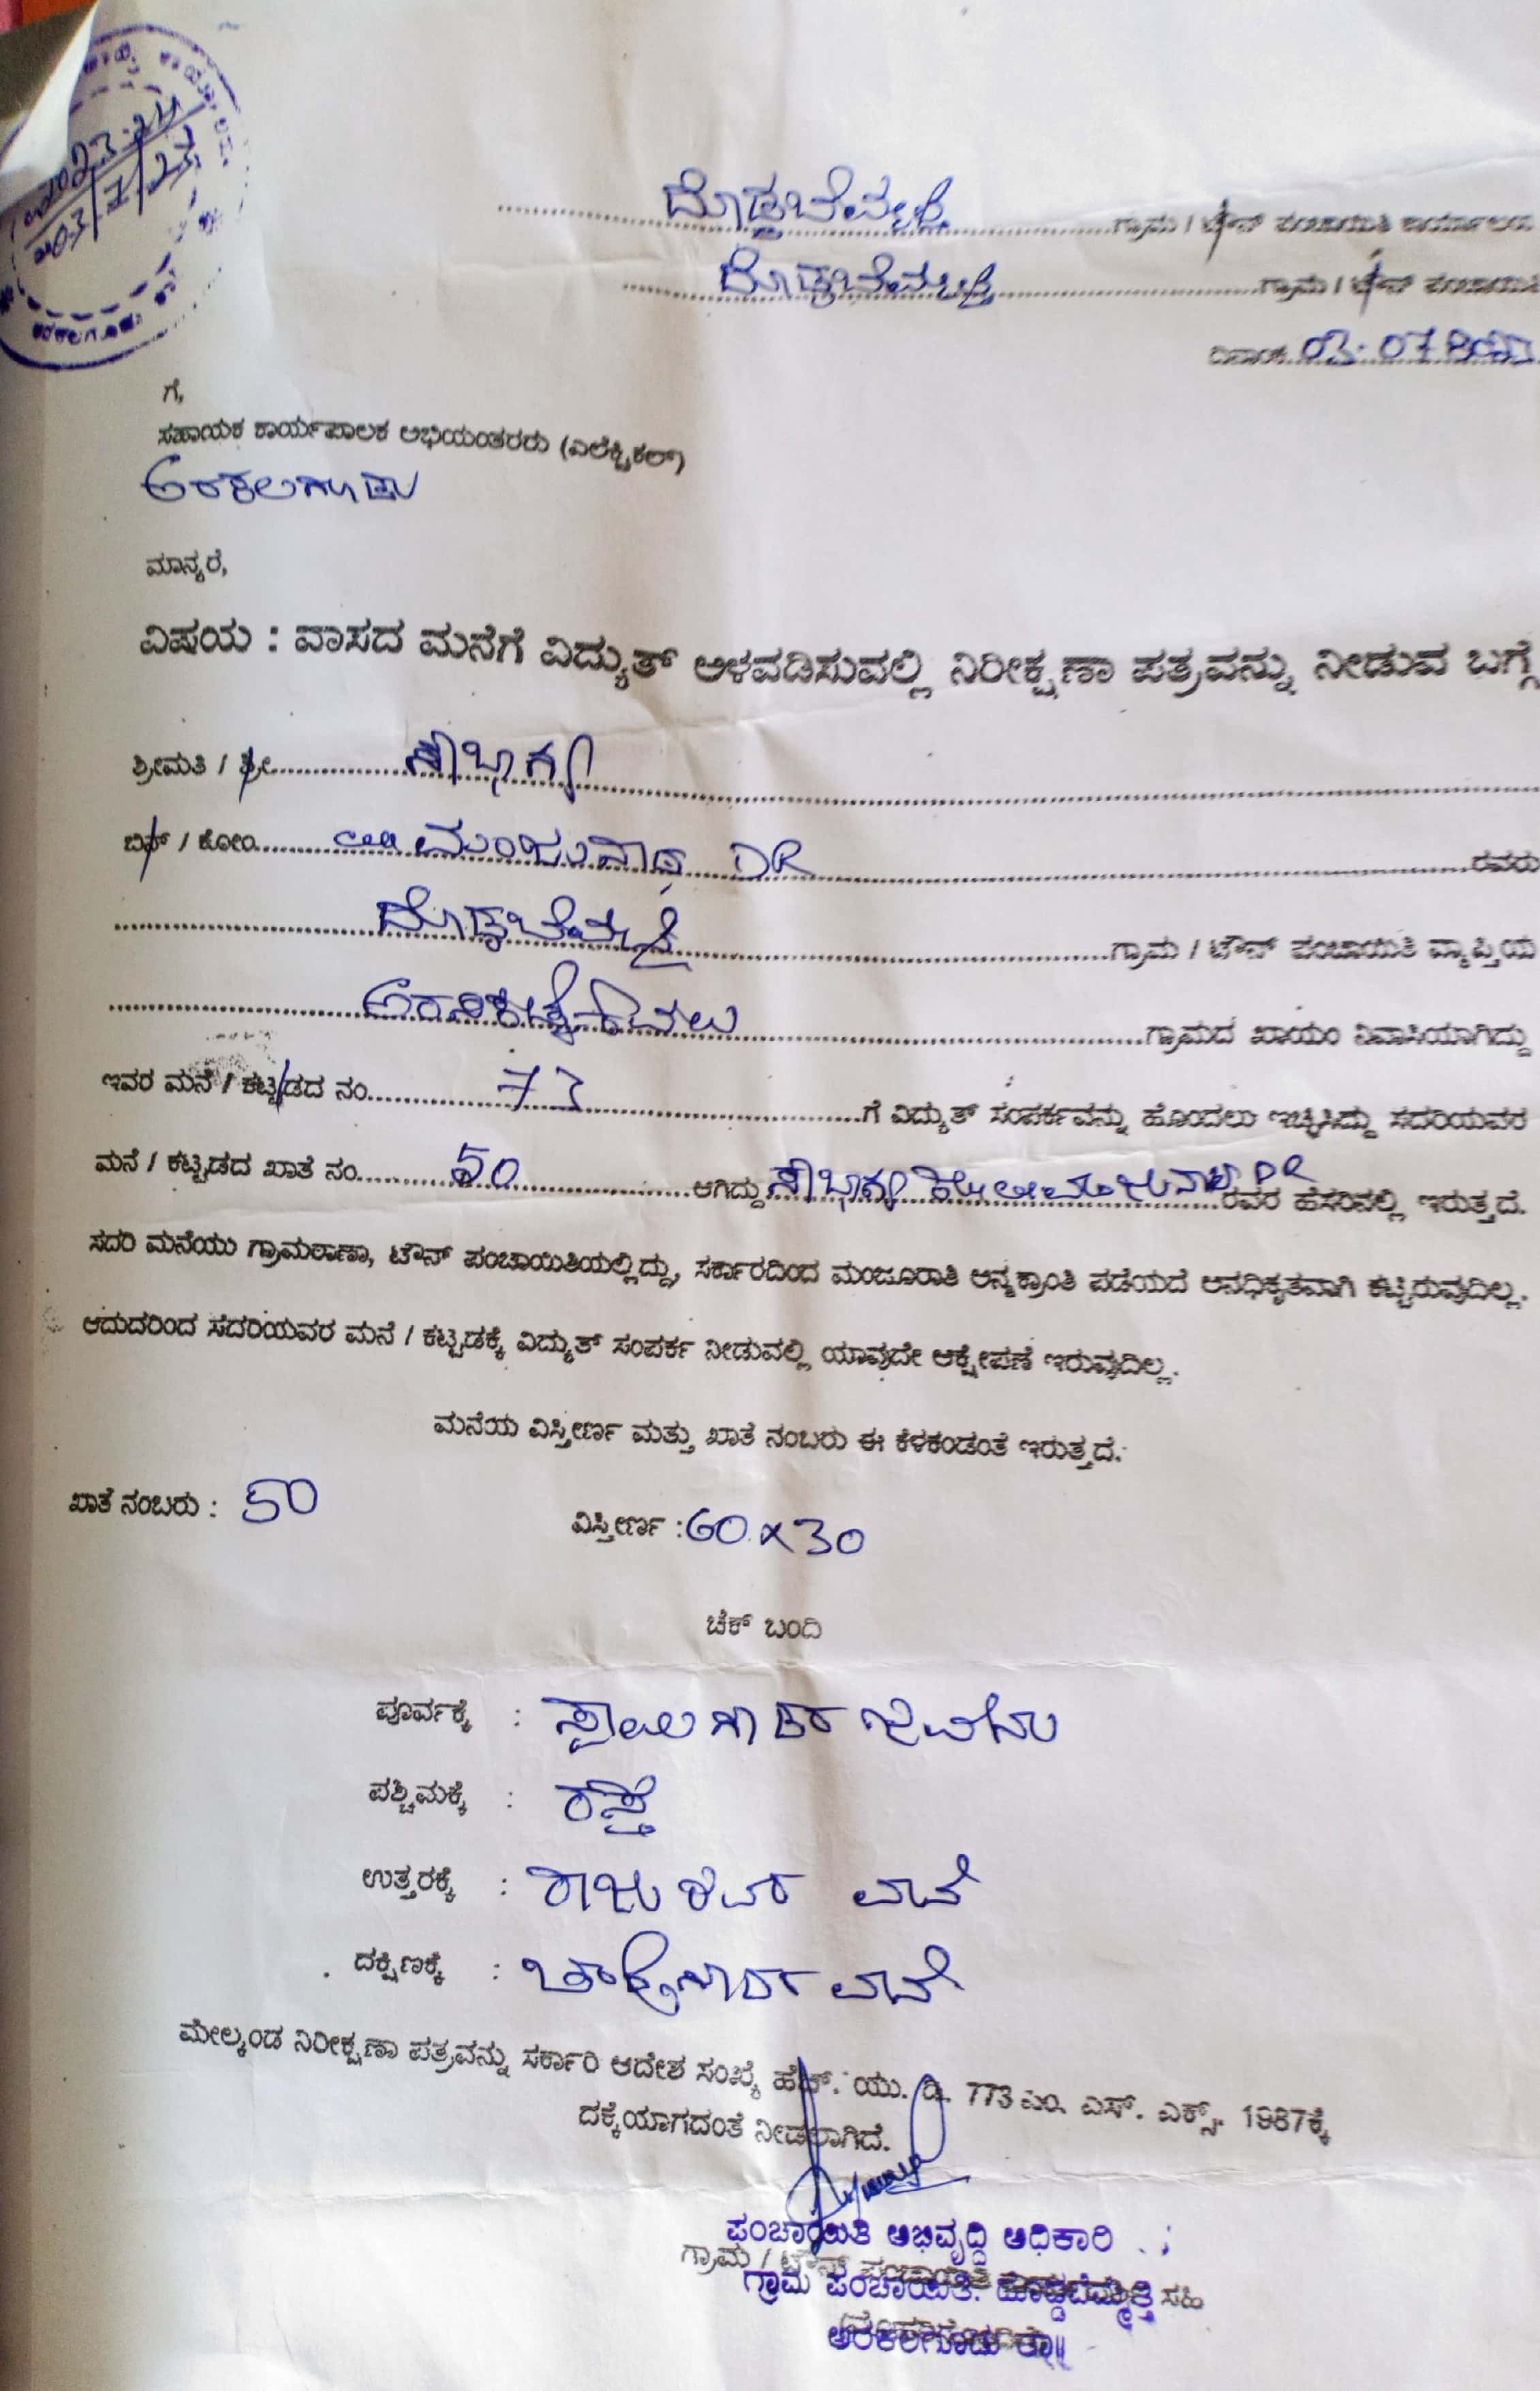 2023-24
03/7/23
ಅರಕಲಗೂಡು
ದೊಡ್ಡಬೆಮ್ಮತ್ತಿ ಗ್ರಾಮ / ಟೌನ್ ಪಂಚಾಯಿತಿ ಕಾರ್ಯಾಲಯ
ದೊಡ್ಡಬೆಮ್ಮತ್ತಿ ಗ್ರಾಮ / ಟೌನ್ ಪಂಚಾಯಿತಿ
ದಿನಾಂಕ 03-07
ಗೆ,
ಸಹಾಯಕ ಕಾರ್ಯಪಾಲಕ ಅಭಿಯಂತರರು (ಎಲೆಕ್ಟ್ರಿಕಲ್)
ಅರಕಲಗೂಡು
ಮಾನ್ಯರೆ,
ವಿಷಯ : ವಾಸದ ಮನೆಗೆ ವಿದ್ಯುತ್ ಅಳವಡಿಸುವಲ್ಲಿ ನಿರೀಕ್ಷಣಾ ಪತ್ರವನ್ನು ನೀಡುವ ಬಗ್ಗೆ
ಶ್ರೀಮತಿ / ಶ್ರೀ ಸೌಭಾಗ್ಯ
ಬಿನ್ / ಕೋಂ ಮಂಜುನಾಥ DR ರವರು
ದೊಡ್ಡಬೆಮ್ಮತ್ತಿ ಗ್ರಾಮ / ಟೌನ್ ಪಂಚಾಯಿತಿ ವ್ಯಾಪ್ತಿಯ
ಗ್ರಾಮದ ಖಾಯಂ ನಿವಾಸಿಯಾಗಿದ್ದು
ಇವರ ಮನೆ / ಕಟ್ಟಡದ ನಂ 73 ಗೆ ವಿದ್ಯುತ್ ಸಂಪರ್ಕವನ್ನು ಹೊಂದಲು ಇಚ್ಛಿಸಿದ್ದು ಸದರಿಯವರ
ಮನೆ / ಕಟ್ಟಡದ ಖಾತೆ ನಂ 50 ಆಗಿದ್ದು ಸೌಭಾಗ್ಯ ಕೋಂ ಮಂಜುನಾಥ DR ರವರ ಹೆಸರಿನಲ್ಲಿ ಇರುತ್ತದೆ.
ಸದರಿ ಮನೆಯು ಗ್ರಾಮಠಾಣಾ, ಟೌನ್ ಪಂಚಾಯಿತಿಯಲ್ಲಿದ್ದು, ಸರ್ಕಾರದಿಂದ ಮಂಜೂರಾತಿ ಅನ್ಯಕ್ರಾಂತಿ ಪಡೆಯದೆ ಅನಧಿಕೃತವಾಗಿ ಕಟ್ಟಿರುವುದಿಲ್ಲ.
ಆದುದರಿಂದ ಸದರಿಯವರ ಮನೆ / ಕಟ್ಟಡಕ್ಕೆ ವಿದ್ಯುತ್ ಸಂಪರ್ಕ ನೀಡುವಲ್ಲಿ ಯಾವುದೇ ಆಕ್ಷೇಪಣೆ ಇರುವುದಿಲ್ಲ.
ಮನೆಯ ವಿಸ್ತೀರ್ಣ ಮತ್ತು ಖಾತೆ ನಂಬರು ಈ ಕೆಳಕಂಡಂತೆ ಇರುತ್ತದೆ.
ಖಾತೆ ನಂಬರು : 50 ವಿಸ್ತೀರ್ಣ : 60 x 30
ಚೆಕ್ ಬಂದಿ
ಪೂರ್ವಕ್ಕೆ :
ಪಶ್ಚಿಮಕ್ಕೆ : ರಸ್ತೆ
ಉತ್ತರಕ್ಕೆ : ರಾಜು ರವರ ಮನೆ
ದಕ್ಷಿಣಕ್ಕೆ : ಮನೆ
ಮೇಲ್ಕಂಡ ನಿರೀಕ್ಷಣಾ ಪತ್ರವನ್ನು ಸರ್ಕಾರಿ ಆದೇಶ ಸಂಖ್ಯೆ ಹೆಚ್. ಯು. ಡಿ. 773 ಎಂ. ಎಸ್. ಎಕ್ಸ್. 1987ಕ್ಕೆ
ದಕ್ಕೆಯಾಗದಂತೆ ನೀಡಲಾಗಿದೆ.
ಪಂಚಾಯಿತಿ ಅಭಿವೃದ್ಧಿ ಅಧಿಕಾರಿ
ಗ್ರಾಮ / ಟೌನ್ ಪಂಚಾಯಿತಿ ಸಹಿ
ಗ್ರಾಮ ಪಂಚಾಯಿತಿ. ದೊಡ್ಡಬೆಮ್ಮತ್ತಿ
ಅರಕಲಗೂಡು ತಾ||